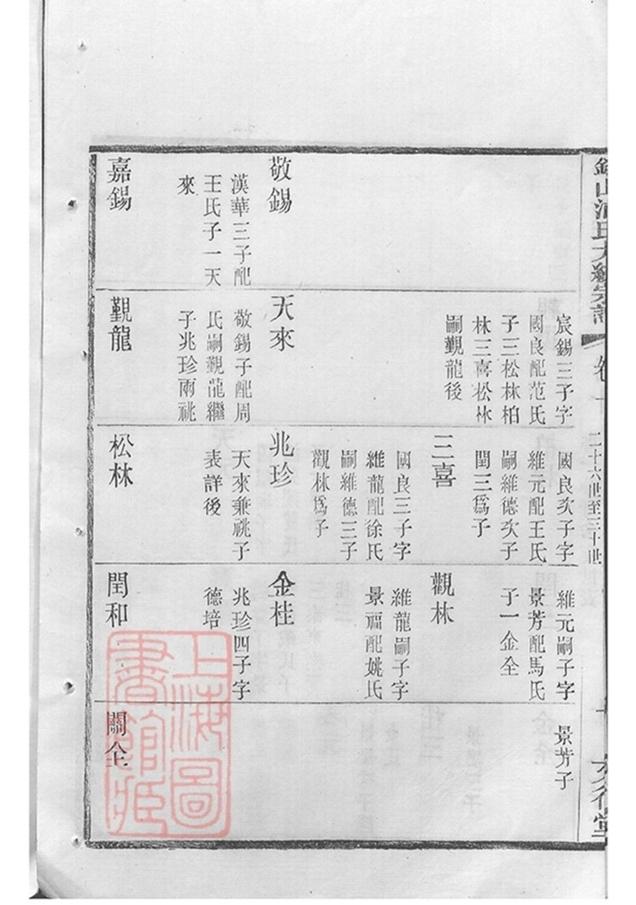 二十六世至三十世
敬錫
漢華三子配
王氏子一天
來
嘉錫
宸錫三子字
國良配范氏
子三松林柏
林三喜松林
嗣覲龍後
天來
敬錫子配周
氏嗣覲龍繼
子兆珍兩祧
覲龍
國良次子字
維元配王氏
嗣維德次子
閏三爲子
三喜
國良三子字
維龍配徐氏
嗣維德三子
觀林爲子
兆珍
天來兼祧子
表詳後
松林
維元嗣子字
景芳配馬氏
子一金全
觀林
維龍嗣子字
景福配姚氏
金桂
兆珍四子字
德培
閏和
景芳子
關全
上海圖
書館藏